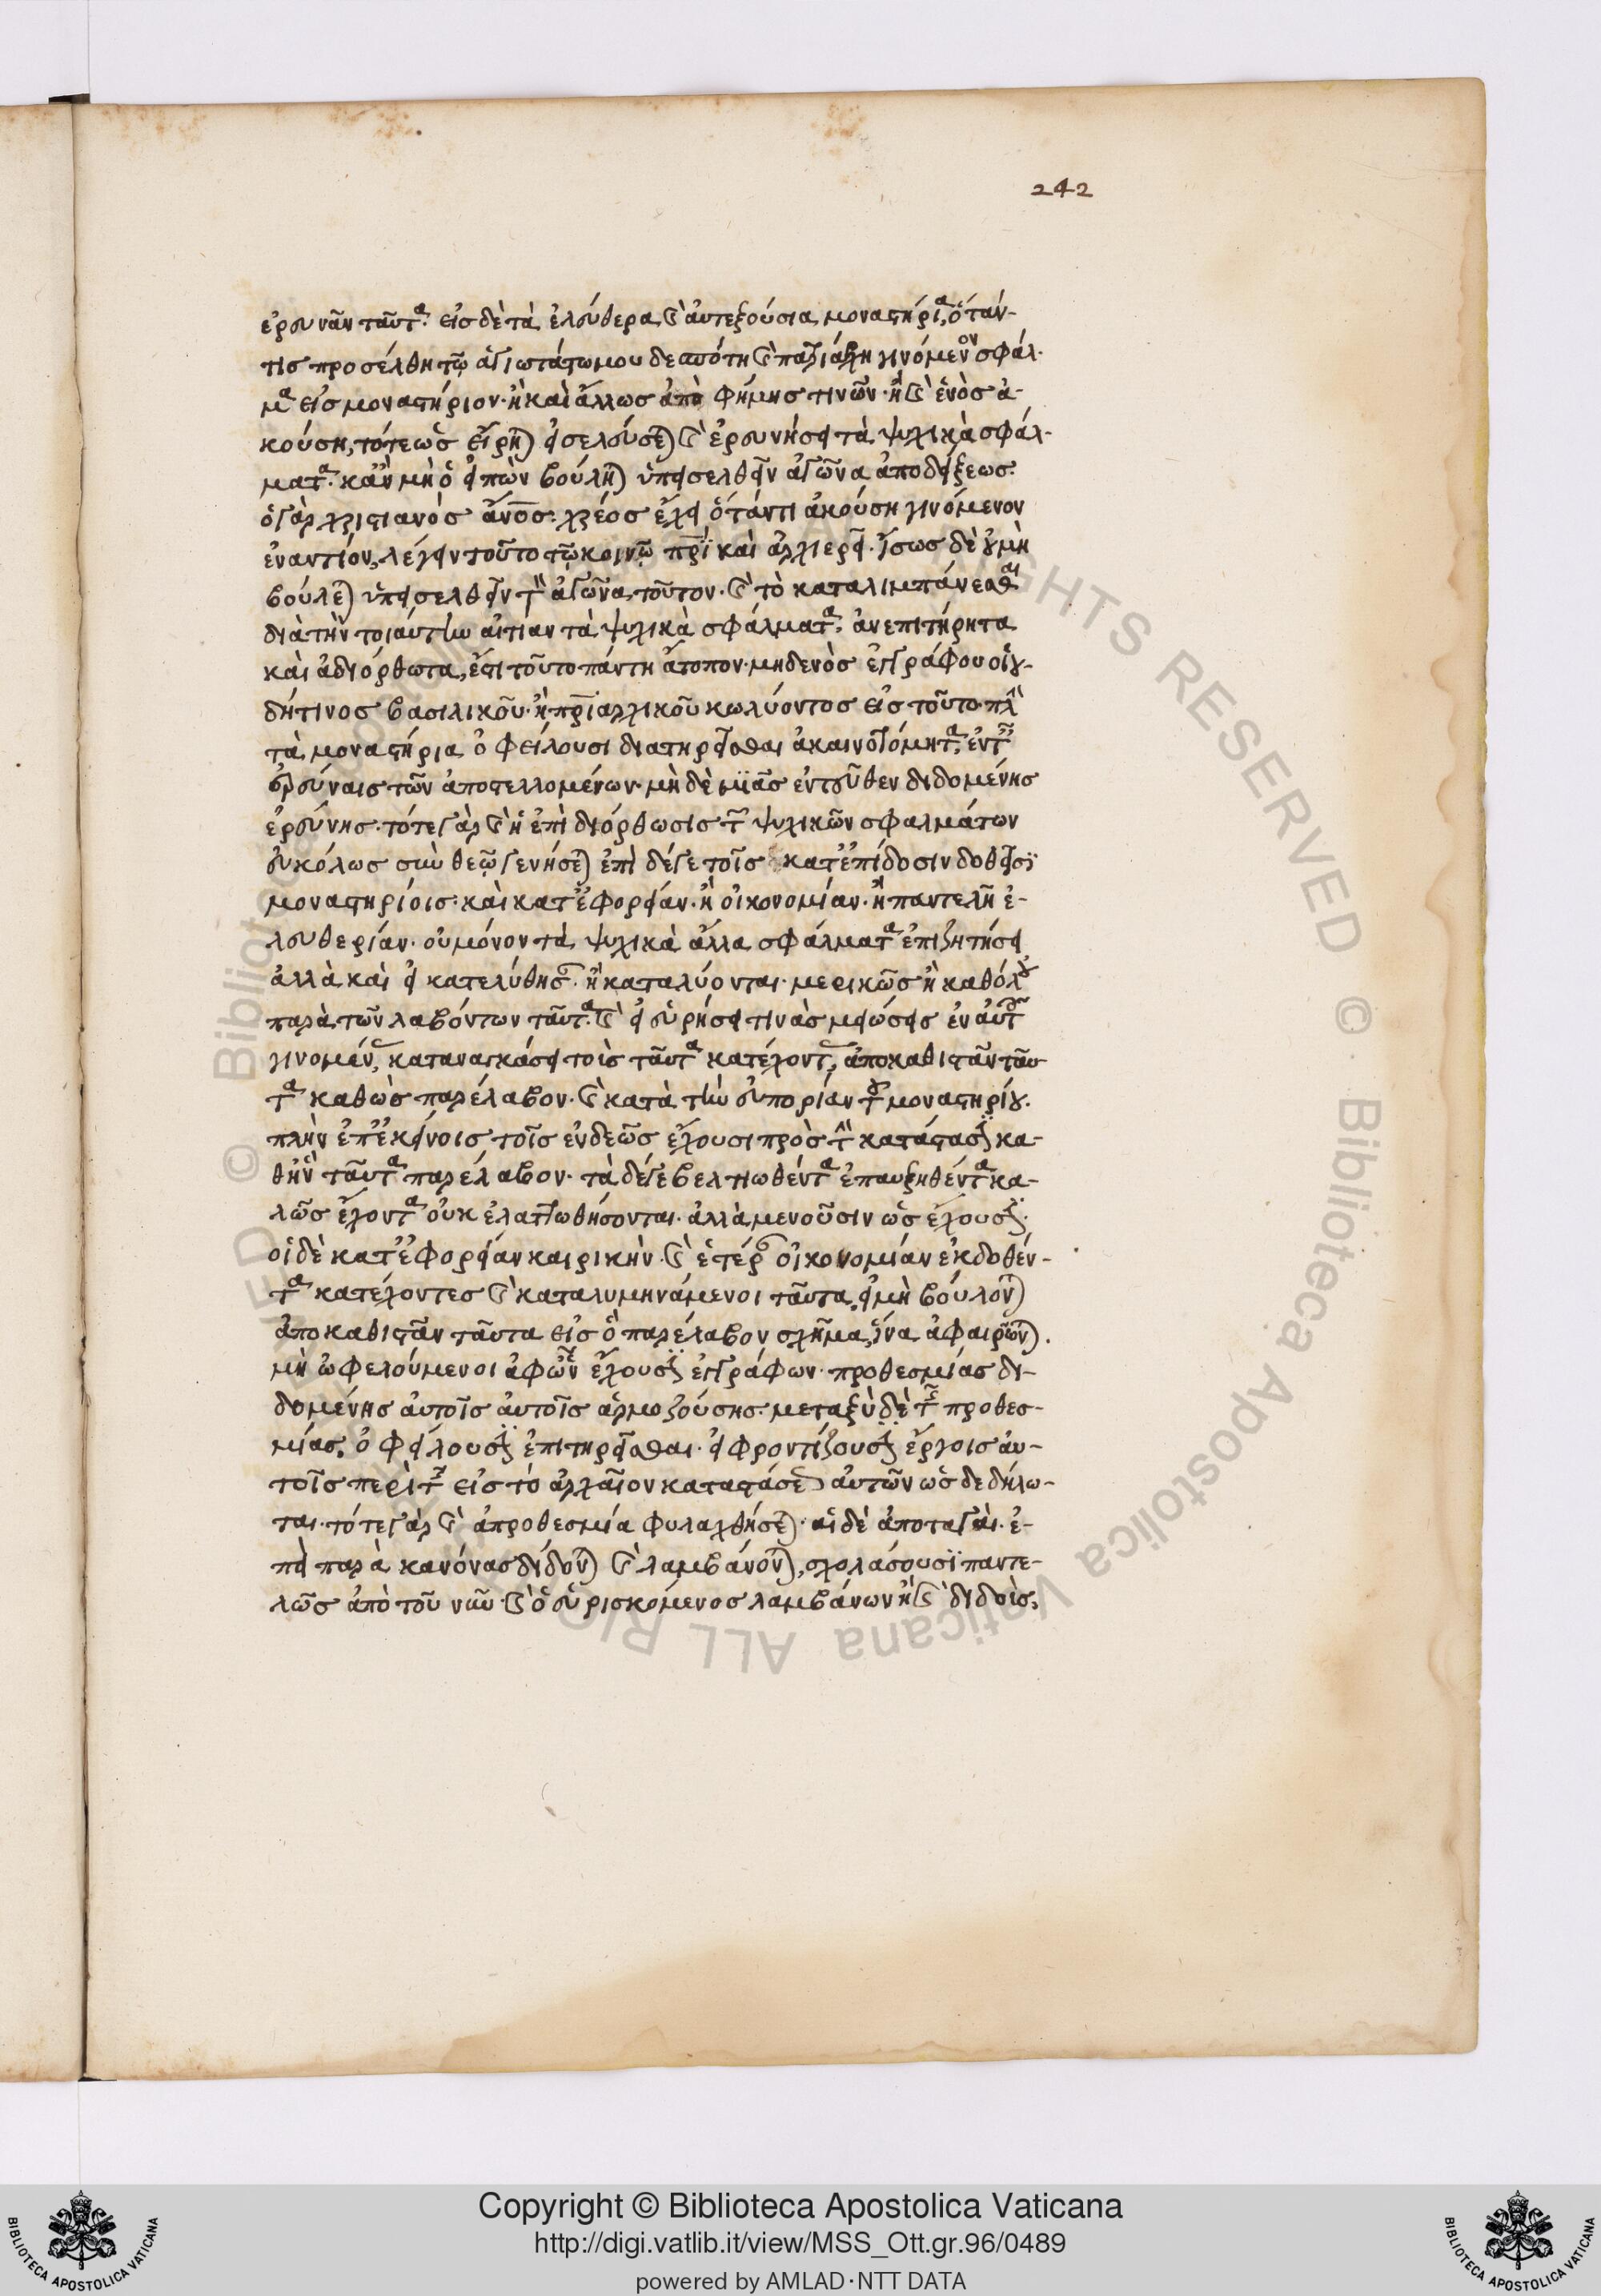 242
ἐρευνᾶν ταῦτα. εἰς δὲ τὰ ἐλεύθερα καὶ αὐτεξούσια μοναστήρια, ὅτάν-
τις προσέλθη τῷ ἁγιωτάτω μου δεσπότη καὶ πατριάρχη γινόμενον σφάλ-
μα εἰς μοναστήριον. ἢ καὶ ἄλλως ἀπὸ φήμης τινῶν. ἢ καὶ ἑνὸς ἀ-
κούση, τότε ὡς εἴρηται εἰσελεύσεται καὶ ἐρευνήσει τὰ ψυχικὰ σφάλ-
ματα. κἂν μὴ ὁ εἰπὼν βούληται ὑπεισελθεῖν ἀγῶνα ἀποδείξεως.
ὁ γὰρ χριστιανὸς ἄνθρωπος. χρέος ἔχει ὅτάν τι ἀκούση γινόμενον
ἐναντίον, λέγειν τοῦτο τῷ κοινῷ πατρὶ καὶ ἀρχιερεῖ. ἴσως δὲ οὐ μὴ
βούλεται ὑπεισελθεῖν τὸν ἀγῶνα τοῦτον. καὶ τὸ καταλιμπάνεσθαι
διὰ τὴν τοιαύτην αἰτίαν τὰ ψυχικὰ σφάλματα, ἀνεπιτήρητα
καὶ ἀδιόρθωτα, ἔστι τοῦτο πάντη ἄτοπον. μηδενὸς ἐγγράφου οἱου-
δήτινος βασιλικοῦ. ἢ πατριαρχικοῦ κωλύοντος εἰς τοῦτο. πλὴν
τὰ μοναστήρια ὀφείλουσι διατηρεῖσθαι ἀκαινοτόμητα, ἐν ταῖς
ἐρεύναις τῶν ἀποστελλομένων. μὴ δὲ μιᾶς ἐντεῦθεν διδομένης
ἐρεύνης. τότε γὰρ καὶ ἡ ἐπὶ διόρθωσις τῶν ψυχικῶν σφαλμάτων
εὐκόλως σὺν θεῷ γενήσεται ἐπὶ δέ γε τοῖς κατ' ἐπίδοσιν δοθεῖσι
μοναστηρίοις. καὶ κατ' ἐφορείαν. ἢ οἰκονομίαν. ἢ παντελῆ ἐ-
λευθερίαν. οὐ μόνον τὰ ψυχικὰ ἄλλα σφάλματα ἐπιζητήσει
ἀλλὰ καὶ εἰ κατελύθησαν. ἢ καταλύονται. μερικῶς ἢ καθόλου
παρὰ τῶν λαβόντων ταῦτα. καὶ εἰ εὑρήσει τινὰς μειώσεις ἐν αὐτοῖς
γινομένας, καταναγκάσει τοὺς ταῦτα κατέχοντας, ἀποκαθιστᾶν ταῦ-
τα καθὼς παρέλαβον. καὶ κατὰ τὴν εὐπορίαν τοῦ μοναστηρίου.
πλὴν ἐπ' ἐκείνοις τοῖς ἐνδεῶς ἔχουσι πρὸς τὴν κατάστασιν κα-
θ' ἣν ταῦτα παρέλαβον. τὰ δέ γε βελτιωθέντα ἐπαυξηθέντα κα-
λῶς ἔχοντα οὐκ ἐλαττωθήσονται. ἀλλὰ μενοῦσιν ὡς ἔχουσιν.
οἱ δὲ κατ' ἐφορείαν καιρικὴν. καὶ ἑτέραν οἰκονομίαν ἐκδοθέν-
τα κατέχοντες καὶ καταλυμηνάμενοι ταῦτα, εἰ μὴ βούλονται
ἀποκαθιστᾶν ταῦτα εἰς ὃ παρέλαβον σχῆμα, ἵνα ἀφαιρῶνται.
μὴ ὠφελούμενοι ἀφ' ὧν ἔχουσιν ἐγγράφων. προθεσμίας δι-
δομένης αὐτοῖς αὐτοῖς ἁρμοζούσης. μεταξὺ δὲ τῆς προθεσ-
μίας, ὀφείλουσιν ἐπιτηρεῖσθαι. εἰ φροντίζουσιν ἔργοις αὐ-
τοῖς περὶ τῆς εἰς τὸ ἀρχαῖον καταστάσεως αὐτῶν ὡς δεδήλω-
ται. τότε γὰρ καὶ ἀπροθεσμία φυλαχθήσεται. αἱ δὲ ἀποταγαὶ. ἐ-
πεὶ παρὰ κανόνας δίδονται καὶ λαμβάνονται, σχολάσουσι παντε-
λῶς ἀπὸ τοῦ νῦν. καὶ ὁ εὑρισκόμενος λαμβάνων ἢ καὶ διδοὺς,
Copyright © Biblioteca Apostolica Vaticana
http://digi.vatlib.it/view/MSS_Ott.gr.96/0489
powered by AMLAD·NTT DATA